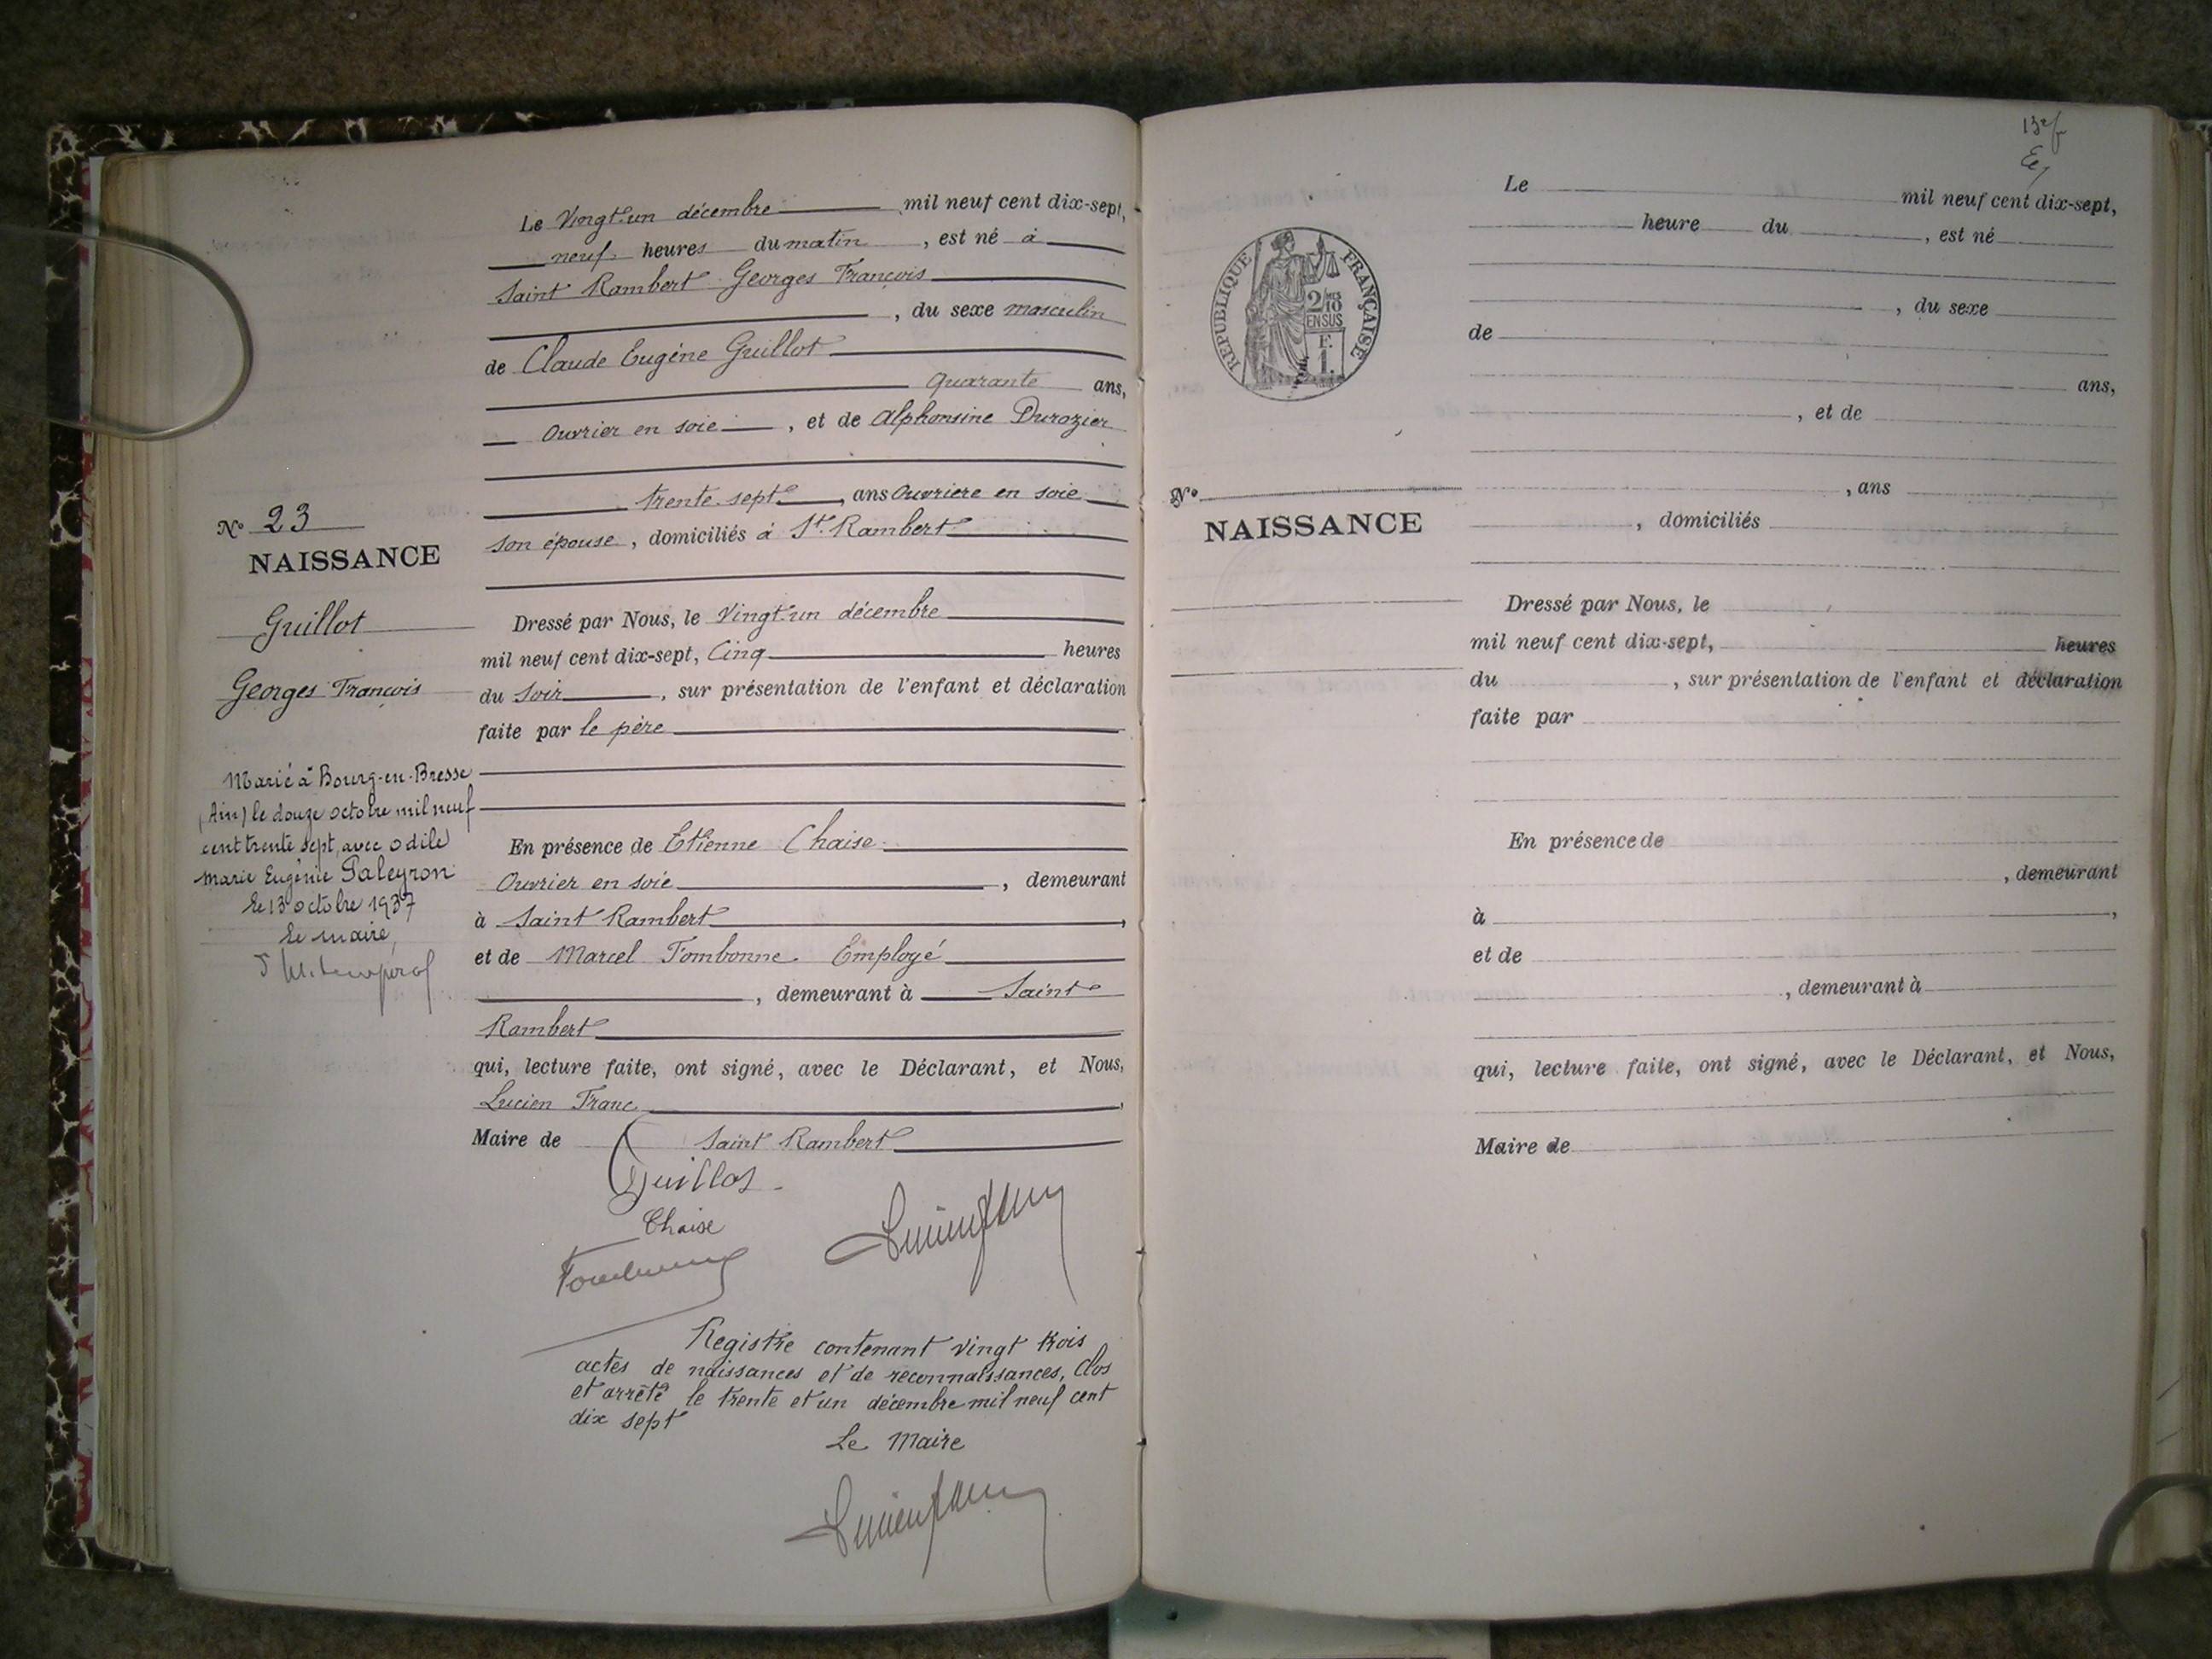 Le Vingt-un décembre mil neuf cent dix-sept,
neuf heures du matin, est né à
Saint Rambert Georges François
, du sexe masculin
de Claude Eugène Guillot
quarante ans,
Ouvrier en soie, et de Alphonsine Durozier
trente-sept, ans Ouvrière en soie
son épouse, domiciliés à St. Rambert
Nº 23
NAISSANCE
Guillot
Georges François
Dressé par Nous, le Vingt-un décembre
mil neuf cent dix-sept, Cinq heures
du Soir, sur présentation de l'enfant et déclaration
faite par le père
Marié à Bourg-en-Bresse
(Ain) le douze octobre mil neuf
cent trente sept, avec Odile
Marie Eugénie Paleyron
Le 13 octobre 1937
Le maire,
En présence de Etienne Chaise
Ouvrier en soie, demeurant
à Saint Rambert,
et de Marcel Tombonne. Employé
, demeurant à Saint
Rambert
qui, lecture faite, ont signé, avec le Déclarant, et Nous,
Lucien Franc,
Maire de Saint Rambert
Guillot
Chaise
Registre contenant vingt trois
actes de naissances et de reconnaissances, Clos
et arrêté le trente et un décembre mil neuf cent
dix sept
Le Maire
13e f
RÉPUBLIQUE FRANÇAISE
2/10
EN SUS
F.
1.
Le mil neuf cent dix-sept,
heure du, est né
, du sexe
de
ans,
, et de
, ans
Nº
NAISSANCE
, domiciliés
Dressé par Nous, le
mil neuf cent dix-sept, heures
du, sur présentation de l'enfant et déclaration
faite par
En présence de
, demeurant
à,
et de
, demeurant à
qui, lecture faite, ont signé, avec le Déclarant, et Nous,
Maire de